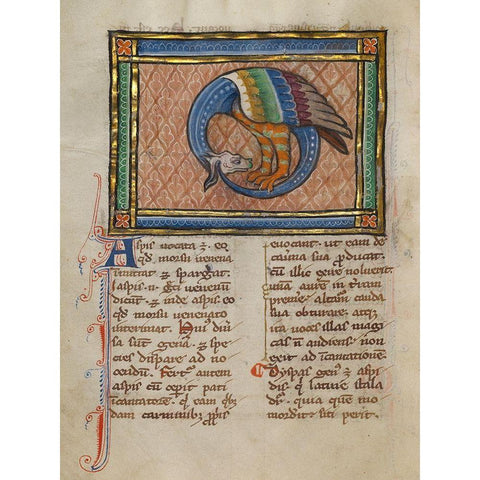 Aspis vocata ꝫ eo
qd̄ morsu venena
īmittat ꝫ spargat.
Iaspis .n. gͥ venenū
dicūt. ꝫ inde aspis. eo
qd̄ morsu venenato
interimat. Huiꝰ diūͥ
sa sūt genͣa. ꝫ spe
cies dispares ad no
cendū. Fertͬ autem
aspis cū ceperit pati
īcantatorē. qͥ eam qͥbꝰ
dam carminibꝫ pͥpͥis
evocant. ut eam de
cauͥna sua producat.
cū illic exire noluerit
unā aurē in tͬram
premit. alteram cauda
sua obturat. atqꝫ
ita voces illas magi
cas nō audiens. non
exit ad īcantationē.
Dyspas genꝰ ꝫ aspi
dis. qͥ latine situla
dͬ. quia quē mo
morditͬ siti perit.